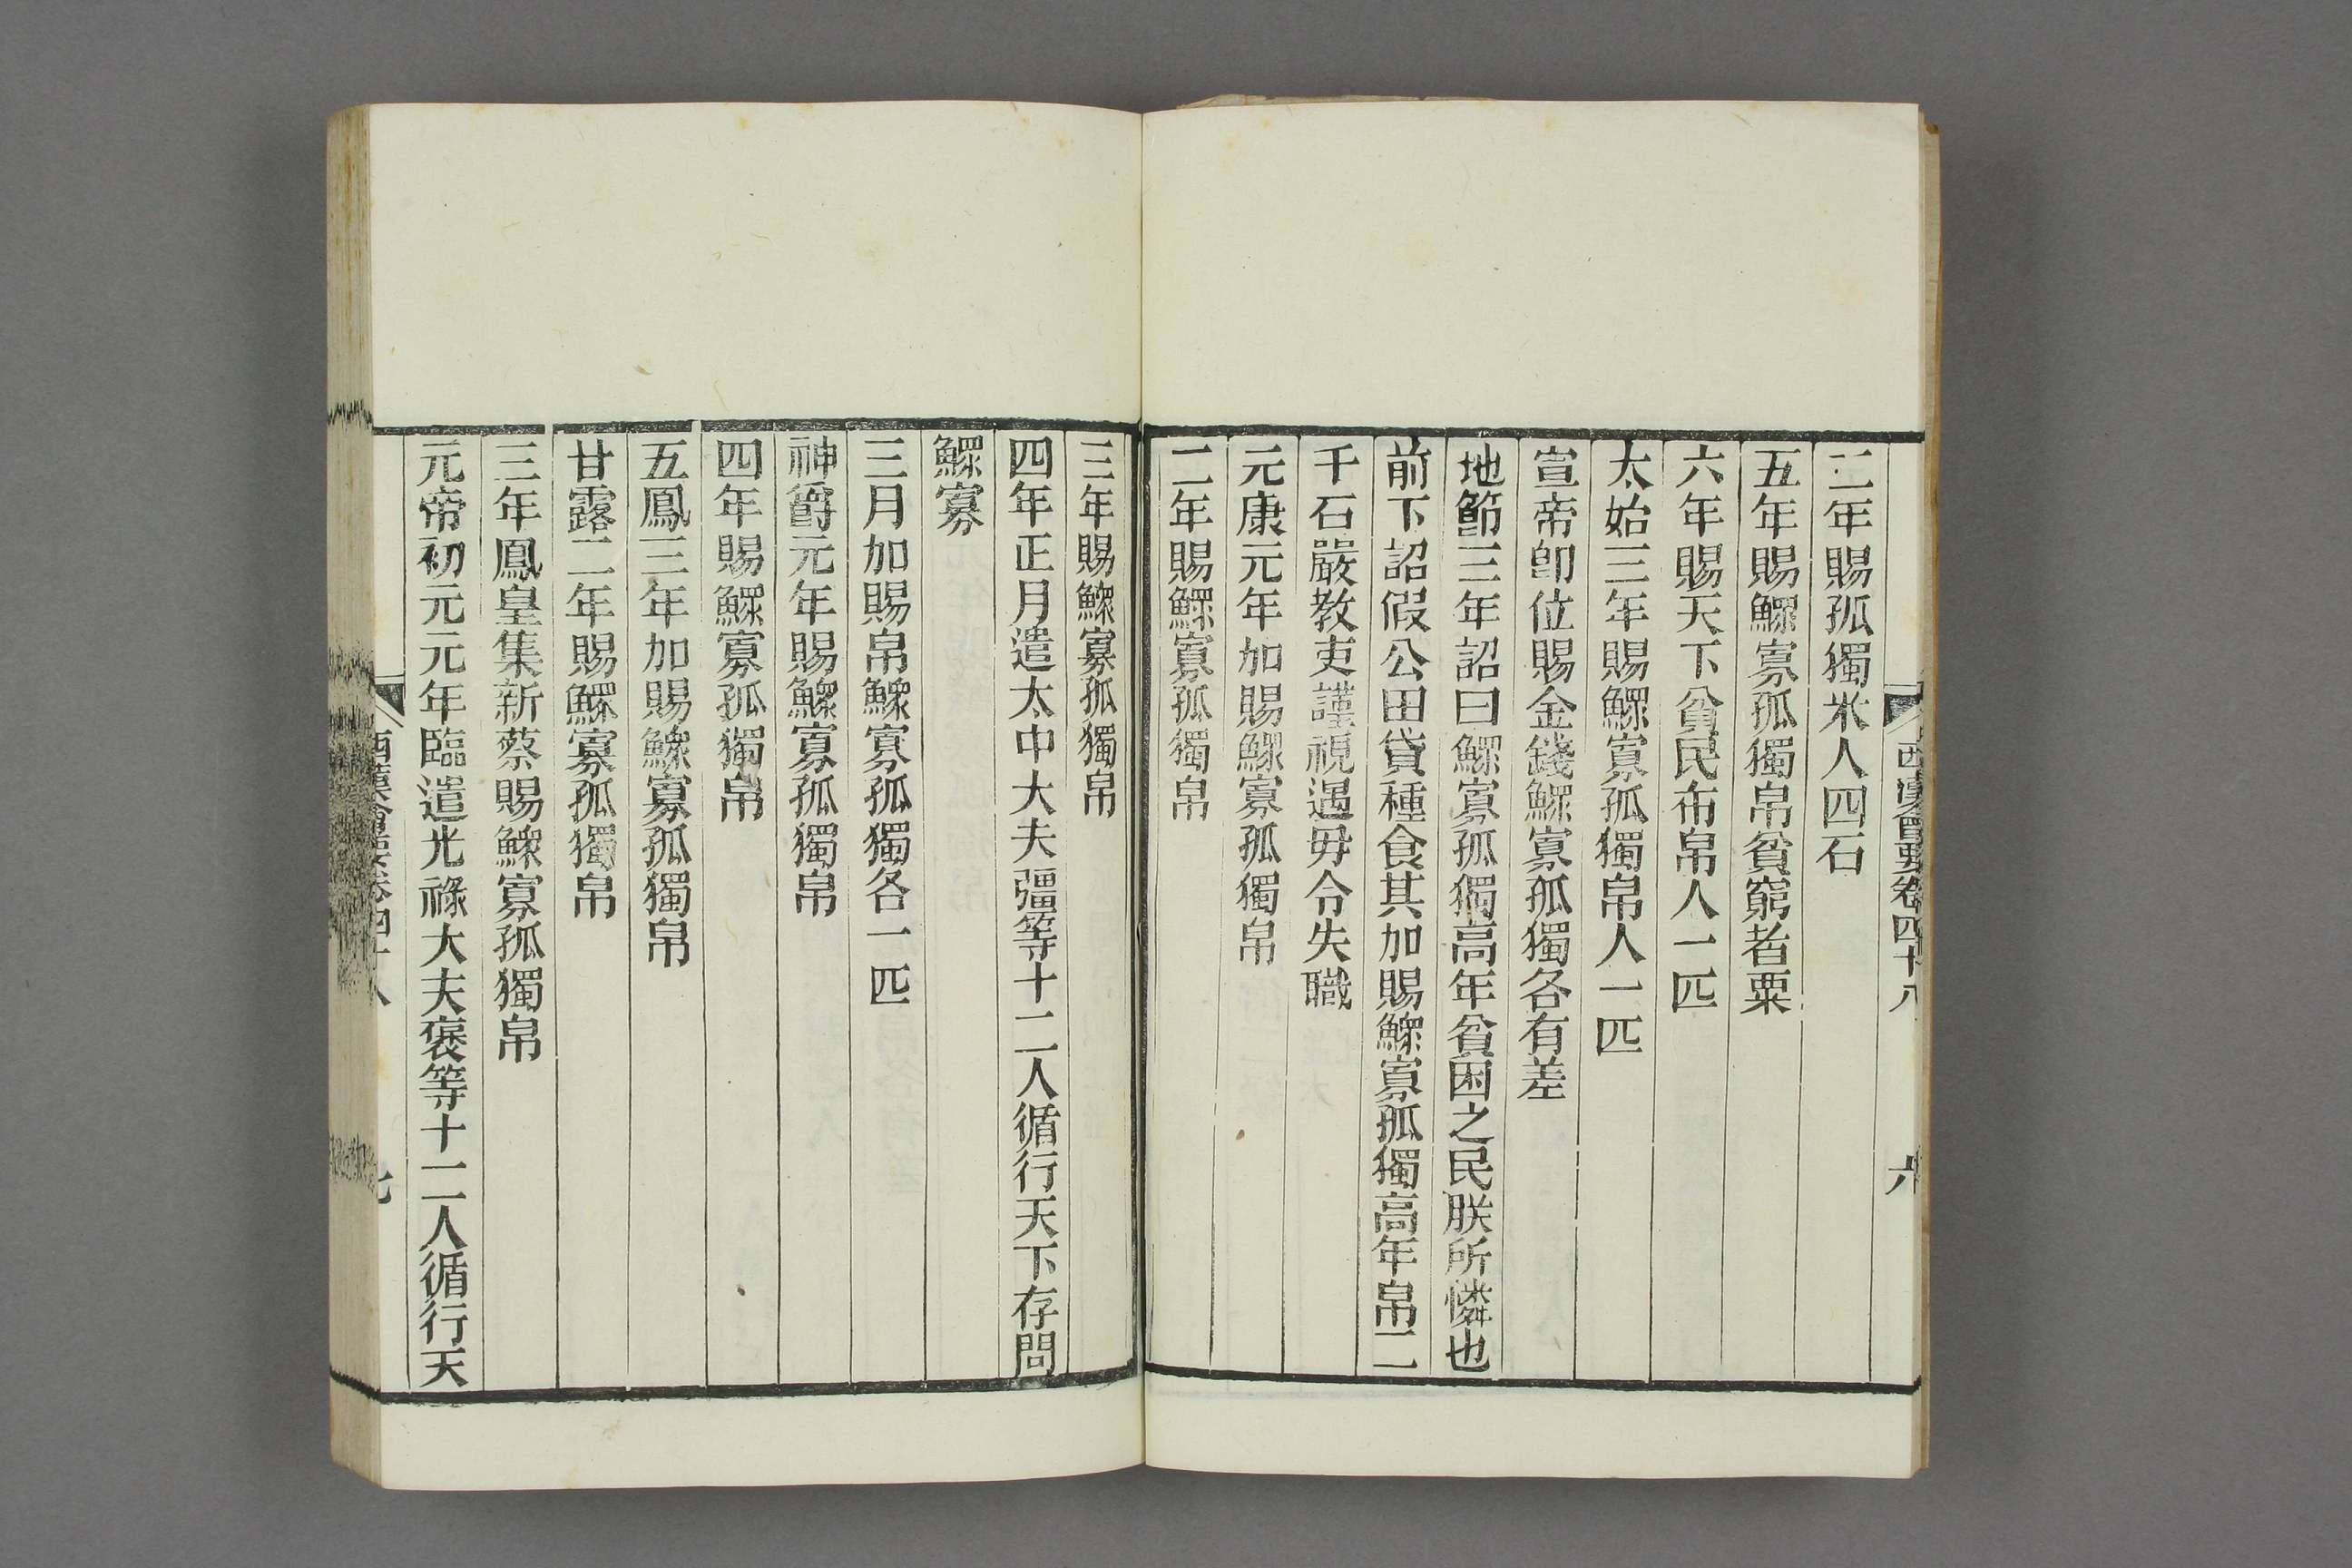 西漢會要卷四十八
六
二年賜孤獨米人四石
五年賜鰥寡孤獨帛貧窮者粟
六年賜天下貧民布帛人一匹
太始三年賜鰥寡孤獨帛人一匹
宣帝卽位賜金錢鰥寡孤獨各有差
地節三年詔曰鰥寡孤獨高年貧困之民朕所憐也
前下詔假公田貸種食其加賜鰥寡孤獨高年帛二
千石嚴敎吏謹視遇毋令失職
元康元年加賜鰥寡孤獨帛
二年賜鰥寡孤獨帛
三年賜鰥寡孤獨帛
四年正月遣太中大夫彊等十二人循行天下存問
鰥寡
三月加賜帛鰥寡孤獨各一匹
神爵元年賜鰥寡孤獨帛
四年賜鰥寡孤獨帛
五鳳三年加賜鰥寡孤獨帛
甘露二年賜鰥寡孤獨帛
三年鳳皇集新蔡賜鰥寡孤獨帛
元帝初元元年臨遣光祿大夫襃等十二人循行天
西漢會要卷四十八
七